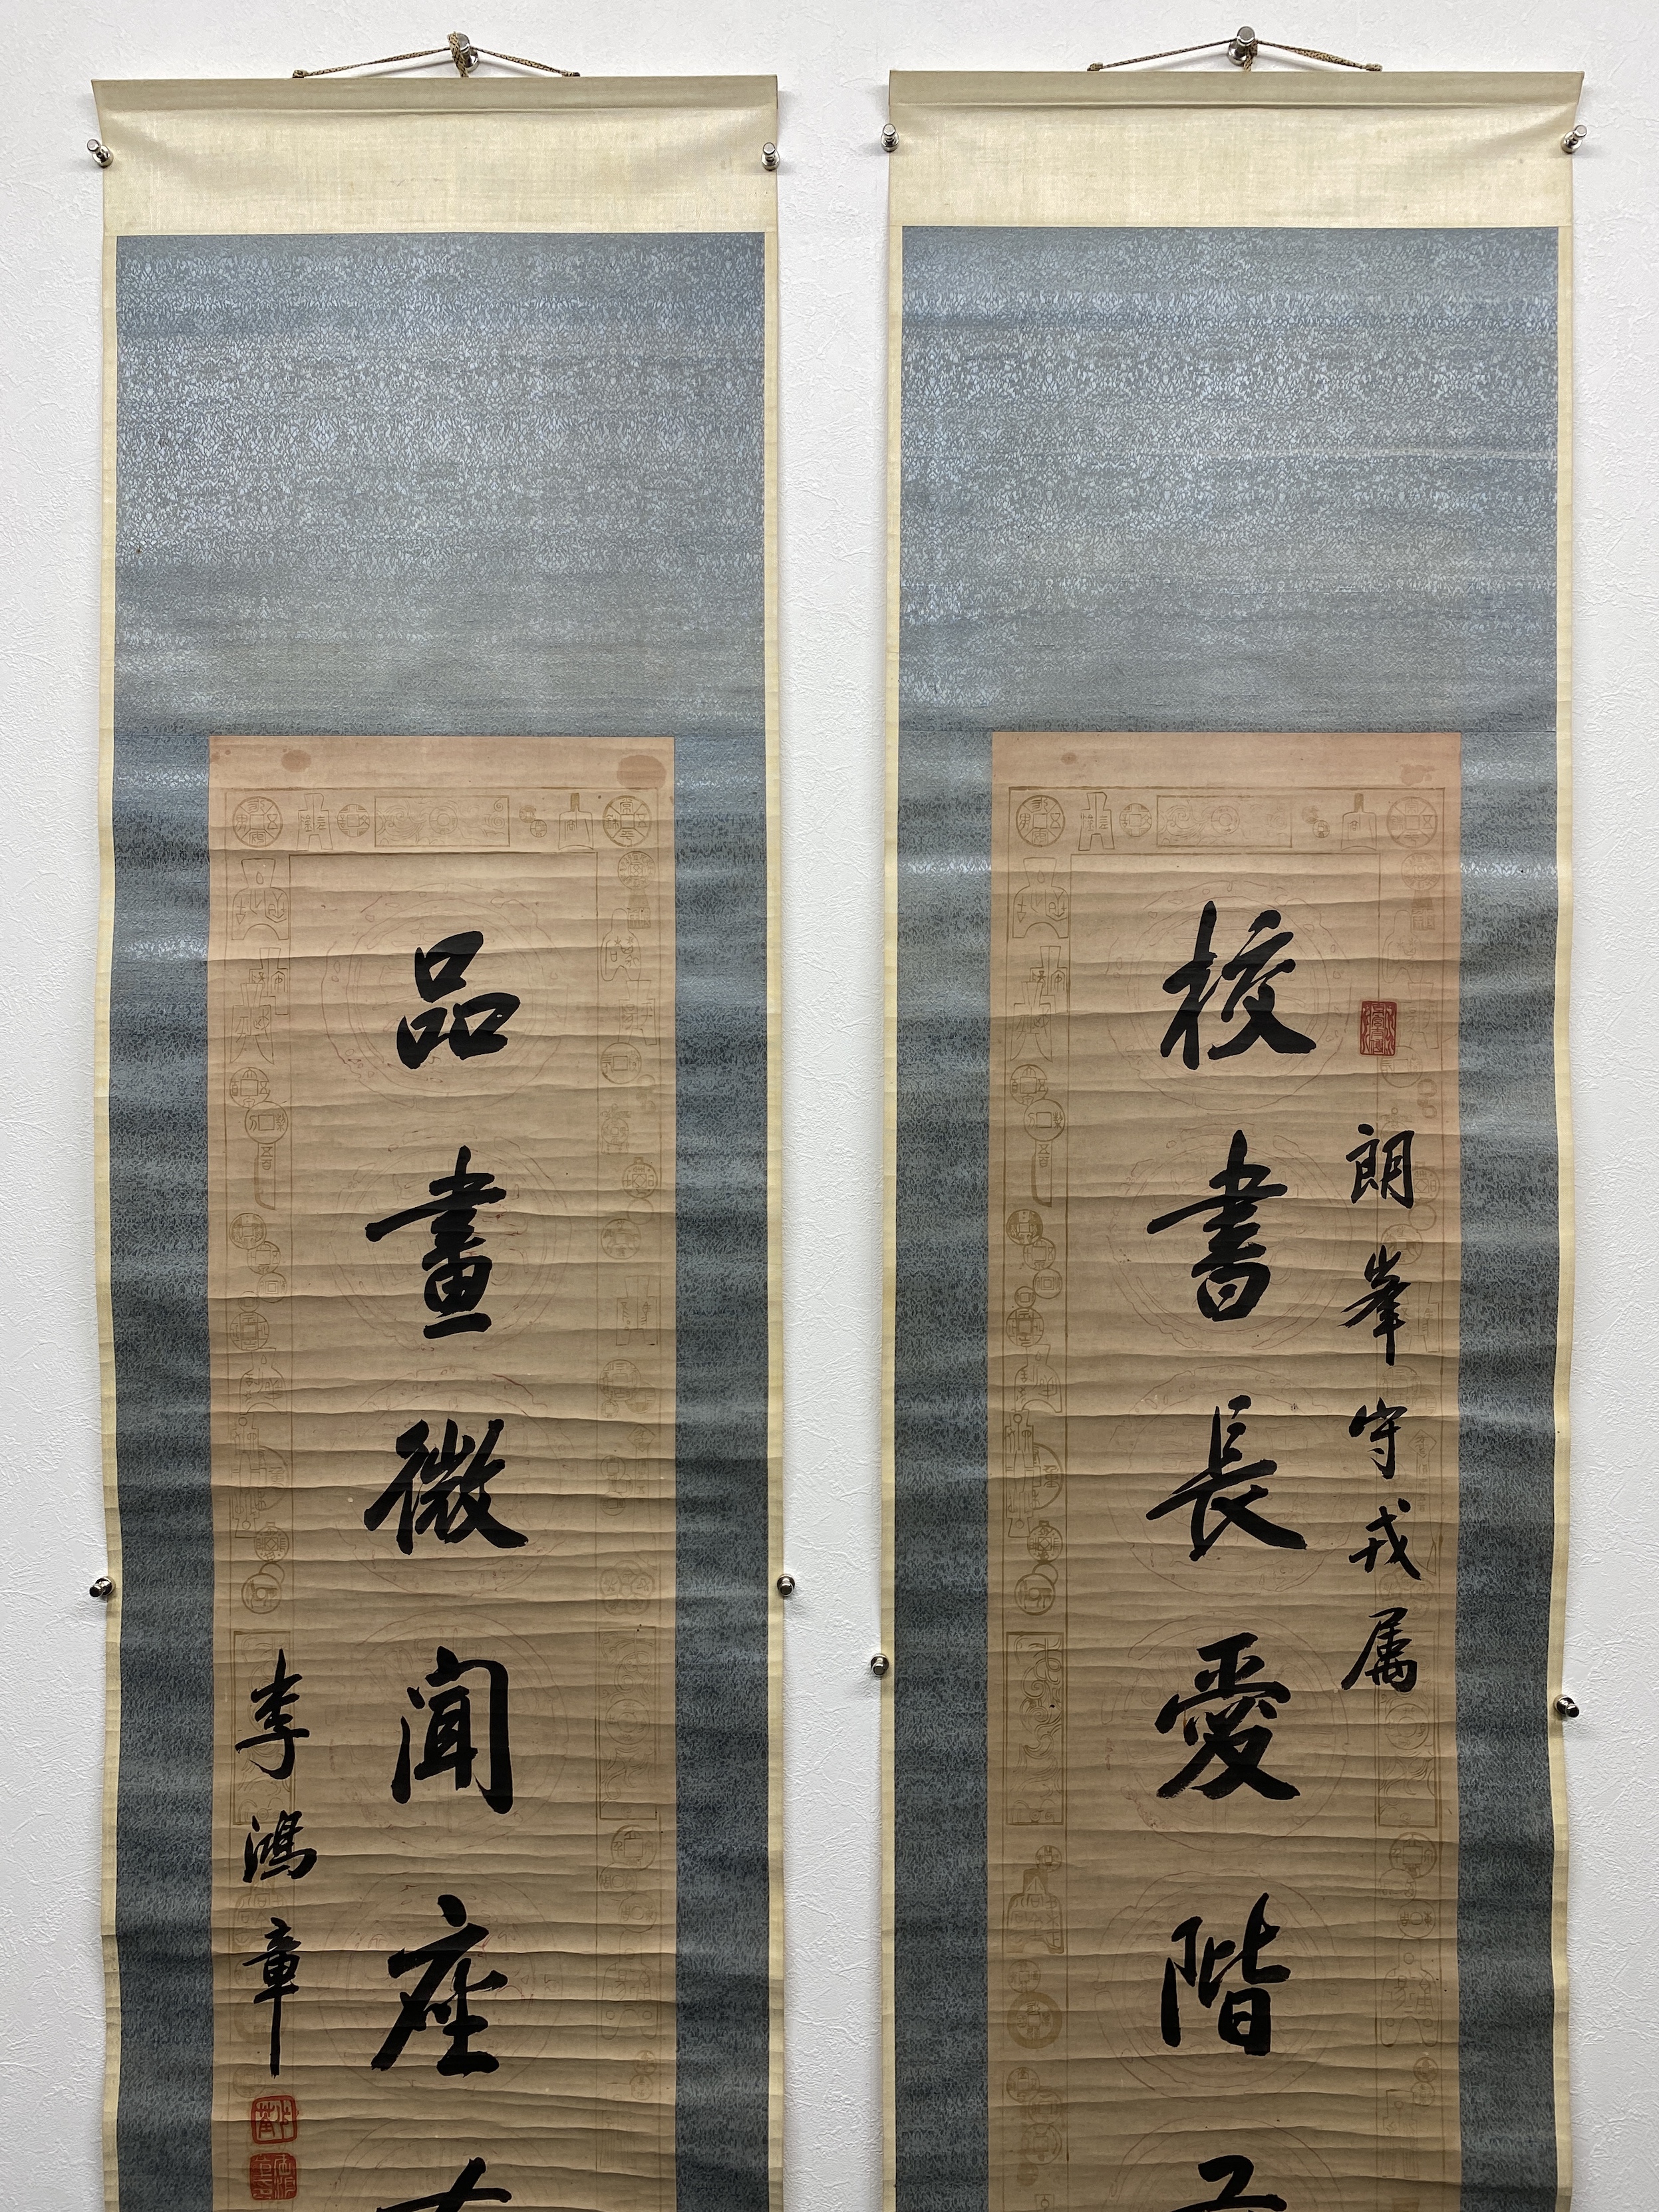 朗峯守戎属
校書長愛階
品畫微聞座
李鴻章